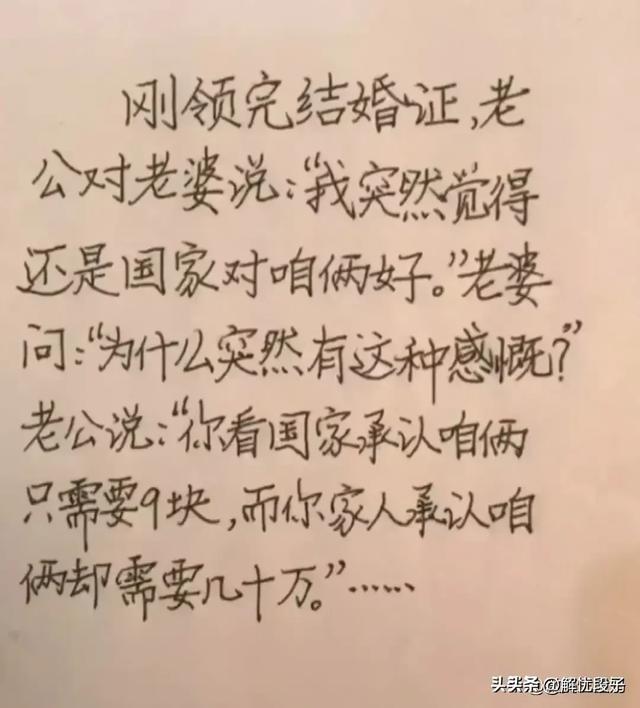 刚领完结婚证,老
公对老婆说:“我突然觉得
还是国家对咱俩好。”老婆
问:“为什么突然有这种感慨?”
老公说:“你看国家承认咱俩
只需要9块,而你家人承认咱
俩却需要几十万。”……
头条 @解忧段子